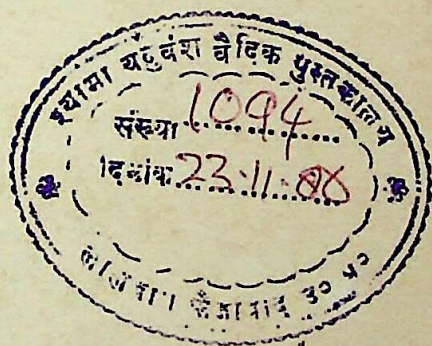 श्यामा यदुवंश वैदिक पुस्तकालय
संख्या 1094
दिनांक 23.11.
फैजाबाद उ० प्र०